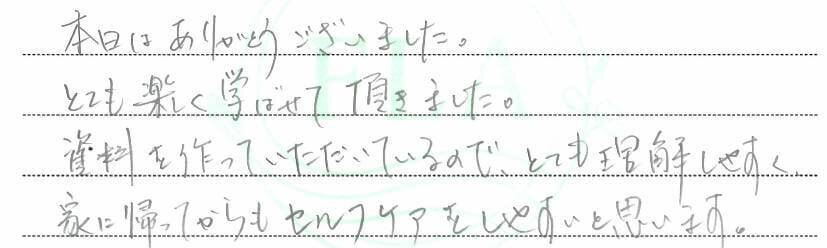 本日はありがとうございました。
とても楽しく学ばせて頂きました。
資料を作っていただいているので、とても理解しやすく、
家に帰ってからもセルフケアをしやすいと思います。